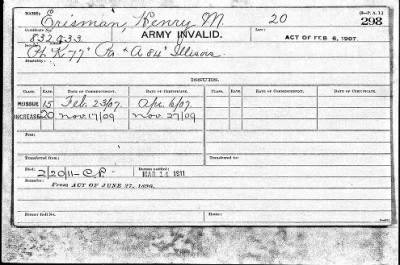 Erisman, Henry M. 20 (3-P. A. 1.)
Certificate No. ARMY INVALID. 298
832933 ACT OF FEB 6, 1907.
K 77" & A 84" Illinois.
Disability:
ISSUES.
CLASS. RATE. DATE OF COMMENCEMENT. DATE OF CERTIFICATE. CLASS. RATE. DATE OF COMMENCEMENT. DATE OF CERTIFICATE.
REISSUE 15 Feb. 23/07. Apr. 6/07.
INCREASE 20 Nov. 17/09 Nov. 27/09
From:
Transferred from: Transferred to:
Died: 2/20/11-C.P. Bureau notified: MAR 14 1911
Remarks: From ACT OF JUNE 27, 1890.
Former Roll No. Home: